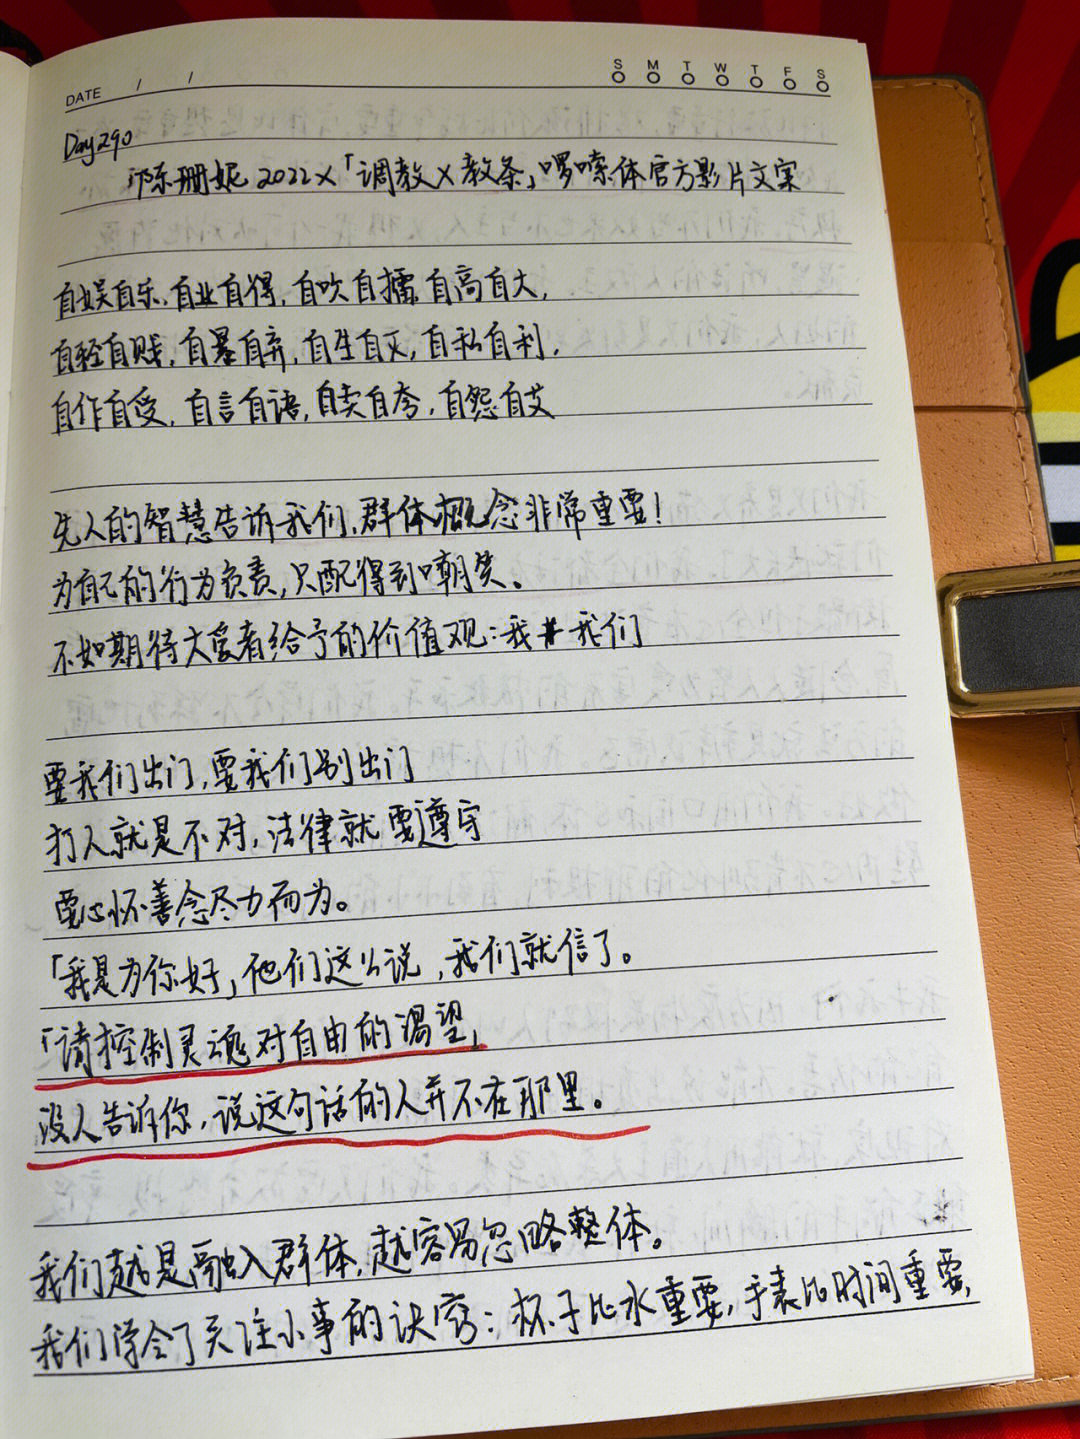 DATE / /
S M T W T F S
Day290
陈珊妮2022×「调教X教条」啰嗦体官方影片文案
自娱自乐,自业自得,自吹自擂,自高自大,
自轻自贱,自暴自弃,自生自灭,自私自利,
自作自受,自言自语,自卖自夸,自怨自艾
先人的智慧告诉我们,群体概念非常重要!
为自己的行为负责,只配得到嘲笑。
不如期待大爱者给予的价值观:我≠我们
要我们出门,要我们别出门
打人就是不对,法律就要遵守
要心怀善念尽力而为。
「我是为你好」他们这么说,我们就信了。
「请控制灵魂对自由的渴望」
没人告诉你,说这句话的人并不在那里。
我们越是融入群体,越容易忽略整体。
我们学会了关注小事的诀窍:杯子比水重要,手表比时间重要,